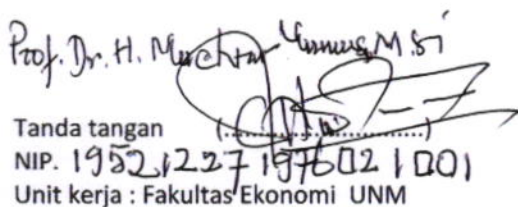 Prof. Dr. H. Muchtar Yunus, M.Si
Tanda tangan (..............................)
NIP. 19521227 197602 1 001
Unit kerja : Fakultas Ekonomi UNM